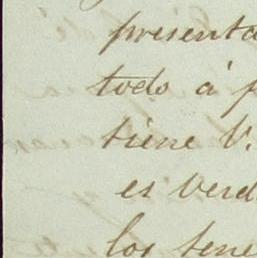 presenta
todo á p
tiene V.
es verd
los tene